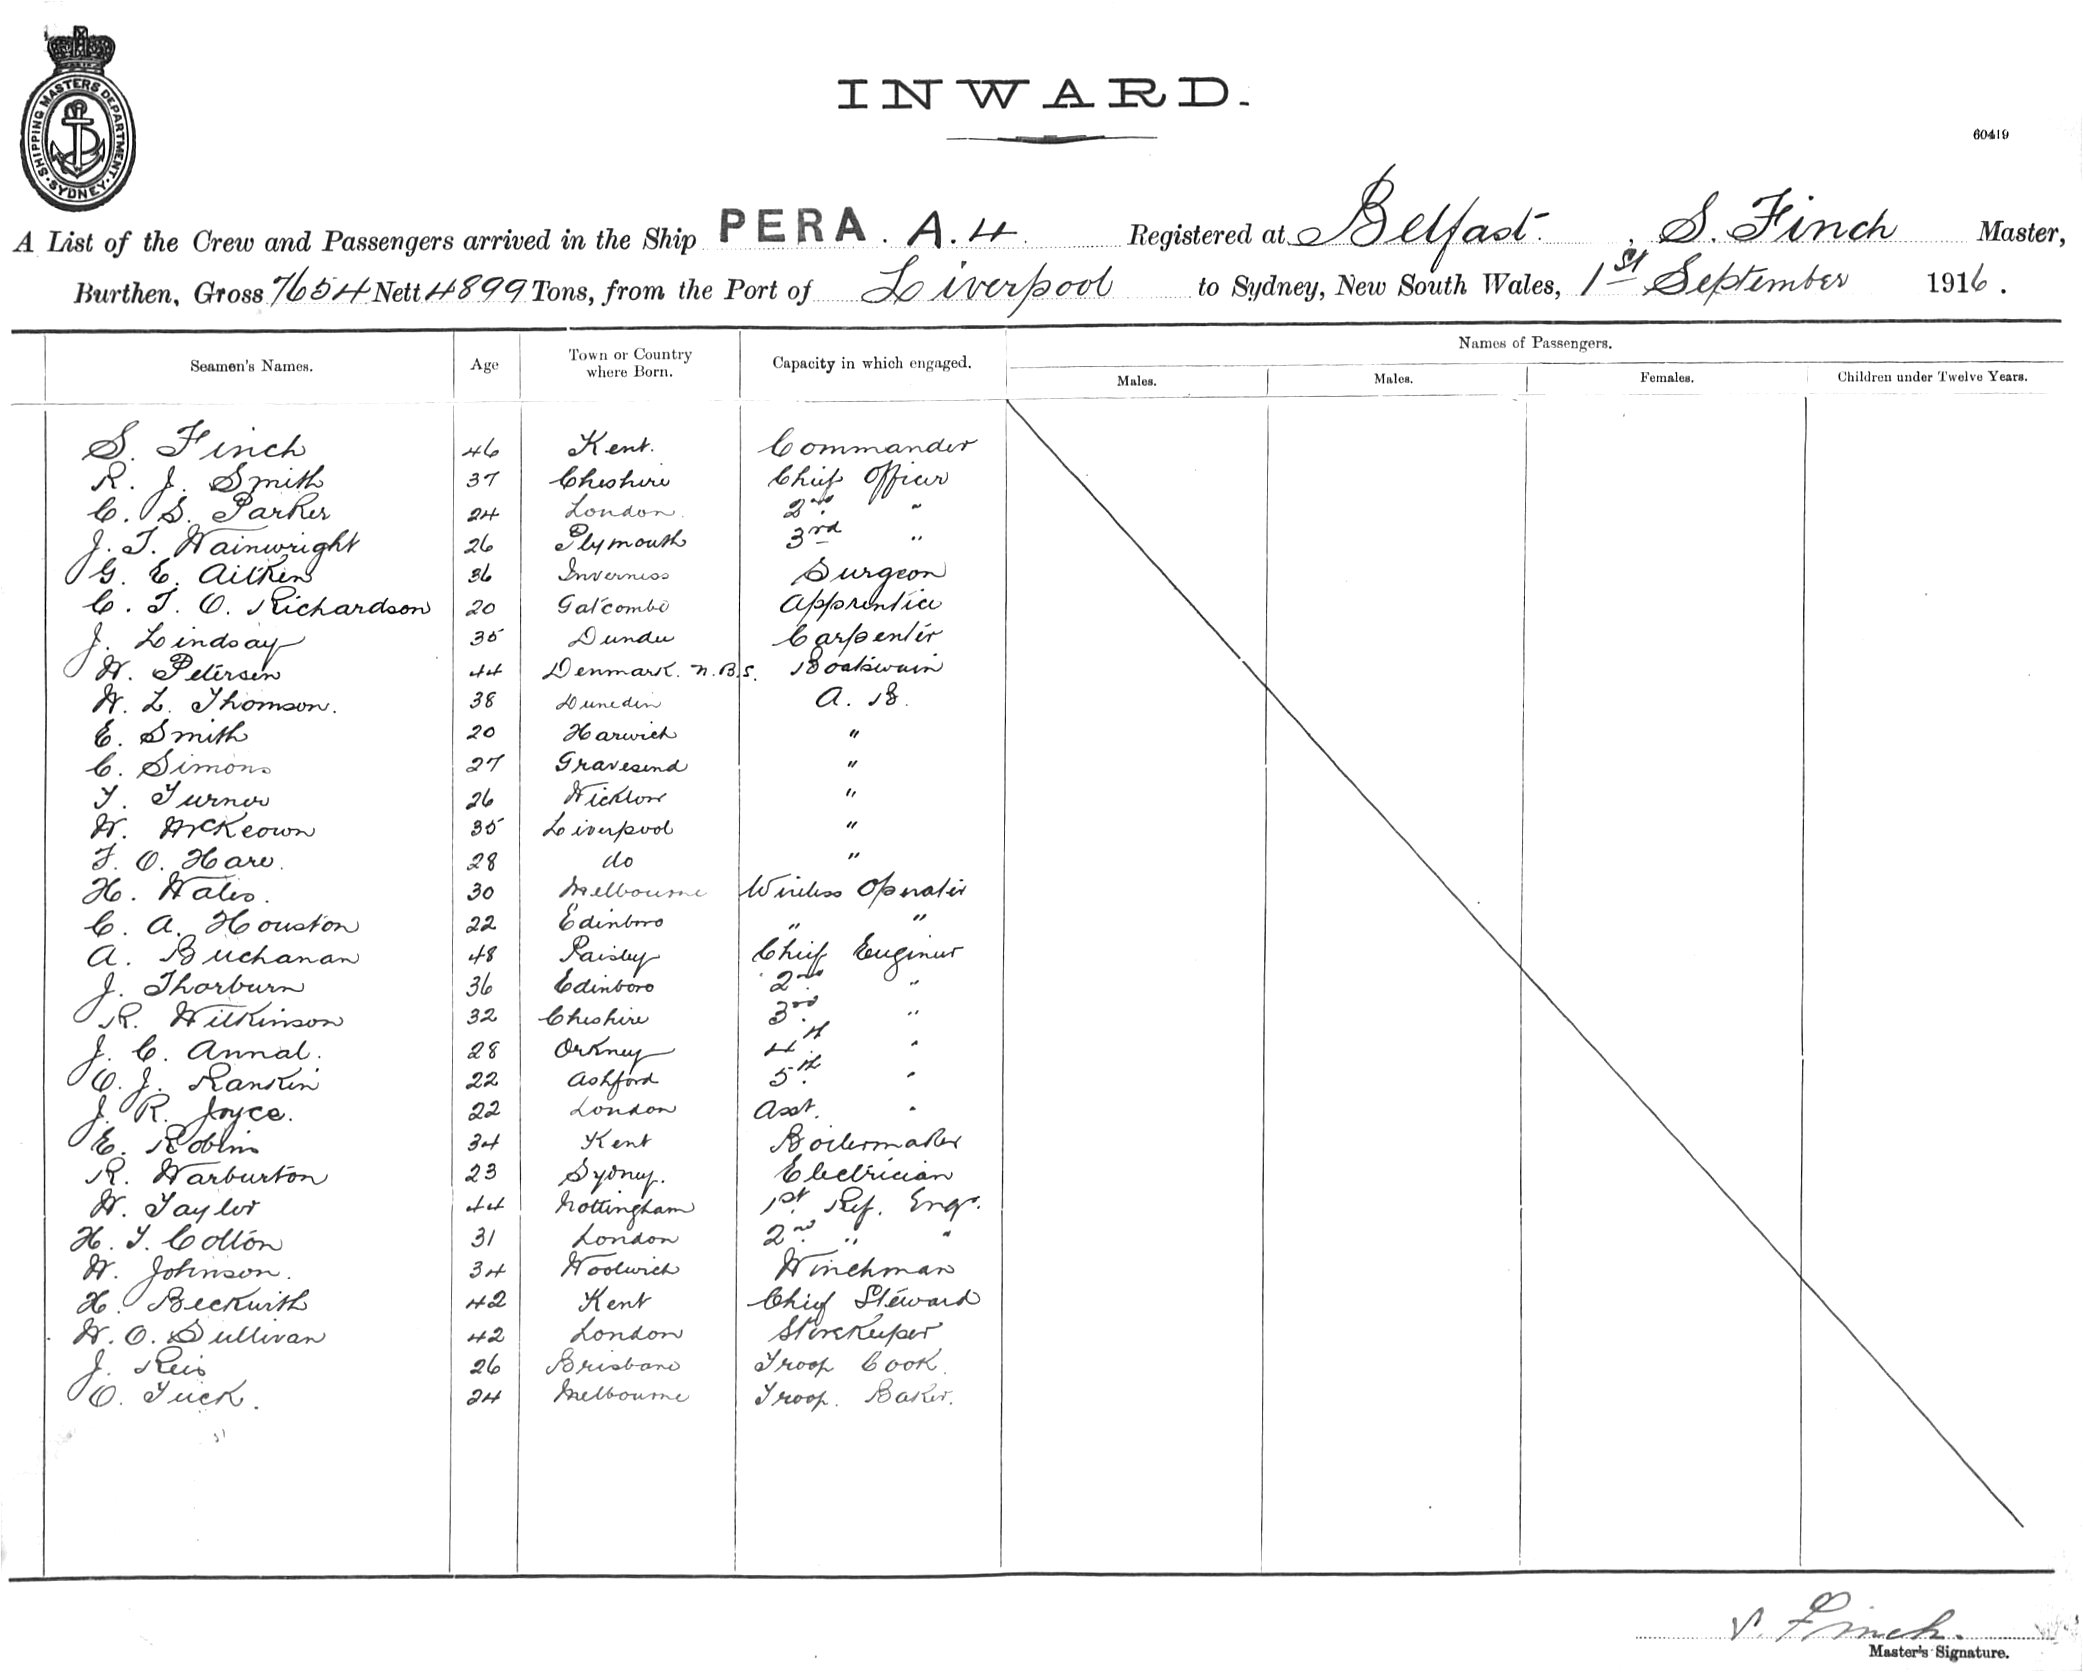 SHIPPING MASTERS DEPARTMENT. SYDNEY.
INWARD.
60419
A List of the Crew and Passengers arrived in the Ship PERA. A.4 Registered at Belfast, S. Finch Master,
Burthen, Gross 7654 Nett 4899 Tons, from the Port of Liverpool to Sydney, New South Wales, 1st September 1916.
Seamen's Names. Age Town or Country where Born. Capacity in which engaged. Names of Passengers.
Males. Males. Females. Children under Twelve Years.
S. Finch 46 Kent. Commander
R. J. Smith 37 Cheshire Chief Officer
C. S. Parker 24 London. 2nd "
J. T. Wainwright 26 Plymouth 3rd "
G. E. Aitken 36 Inverness Surgeon
C. T. O. Richardson 20 Gatcombe Apprentice
J. Lindsay 35 Dundee Carpenter
W. Petersen 44 Denmark. N.B.S. Boatswain
W. L. Thomson. 38 Dunedin A. B.
E. Smith 20 Harwich "
C. Simons 27 Gravesend "
T. Turner 26 Wicklow "
W. McKeown 35 Liverpool "
F. O. Hare. 28 do "
H. Wales. 30 Melbourne Wireless Operator
C. A. Houston 22 Edinboro " "
A. Buchanan 48 Paisley Chief Engineer
J. Thorburn 36 Edinboro 2nd "
R. Wilkinson 32 Cheshire 3rd "
J. C. Annal. 28 Orkney 4th "
O. J. Rankin 22 Ashford 5th "
J. R. Joyce. 22 London Asst. "
E. Robins 34 Kent Boilermaker
R. Warburton 23 Sydney. Electrician
W. Taylor 44 Nottingham 1st Ref. Engr.
H. T. Colton 31 London 2nd " "
W. Johnson. 34 Woolwich Winchman
H. Beckwith 42 Kent Chief Steward
W. O. Sullivan 42 London Storekeeper
J. Reis 26 Brisbane Troop Cook
O. Tuck. 24 Melbourne Troop. Baker.
S. Finch.
Master's Signature.